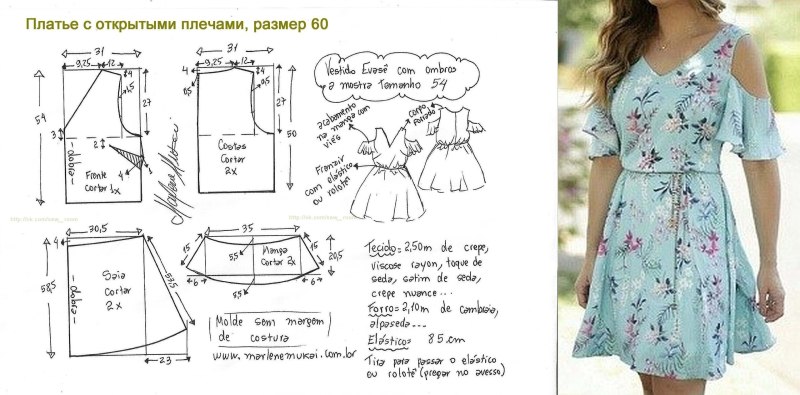 Платье с открытыми плечами, размер 60
31
9,25 12
4
1,5
54
27
3
2
4
-dobra-
Frente
Cortar 1x
31
9,25 12
4
4
0,5
0,5
27
50
Costas
Cortar
2x
Marlene Mukai
Vestido Evasê com ombros
a mostra Tamanho 54
acabamento
na manga com
viés
corpo
forrado
Franzir
com elástico
ou rolotê
30,5
4
58,5
57,5
-dobra-
Saia
Cortar
2x
23
35
15
15
20,5
5,5
5,5
6
6
Manga
Cortar 2x
Molde sem margem
de costura
www.marlenemukai.com.br
Tecido= 2,50m de crepe,
viscose rayon, toque de
seda, satim de seda,
crepe nuance...
Forro= 2,10m de cambraia,
alpaseda...
Elástico= 85cm
Tira para passar o elástico
ou rolotê (pregar no avesso)